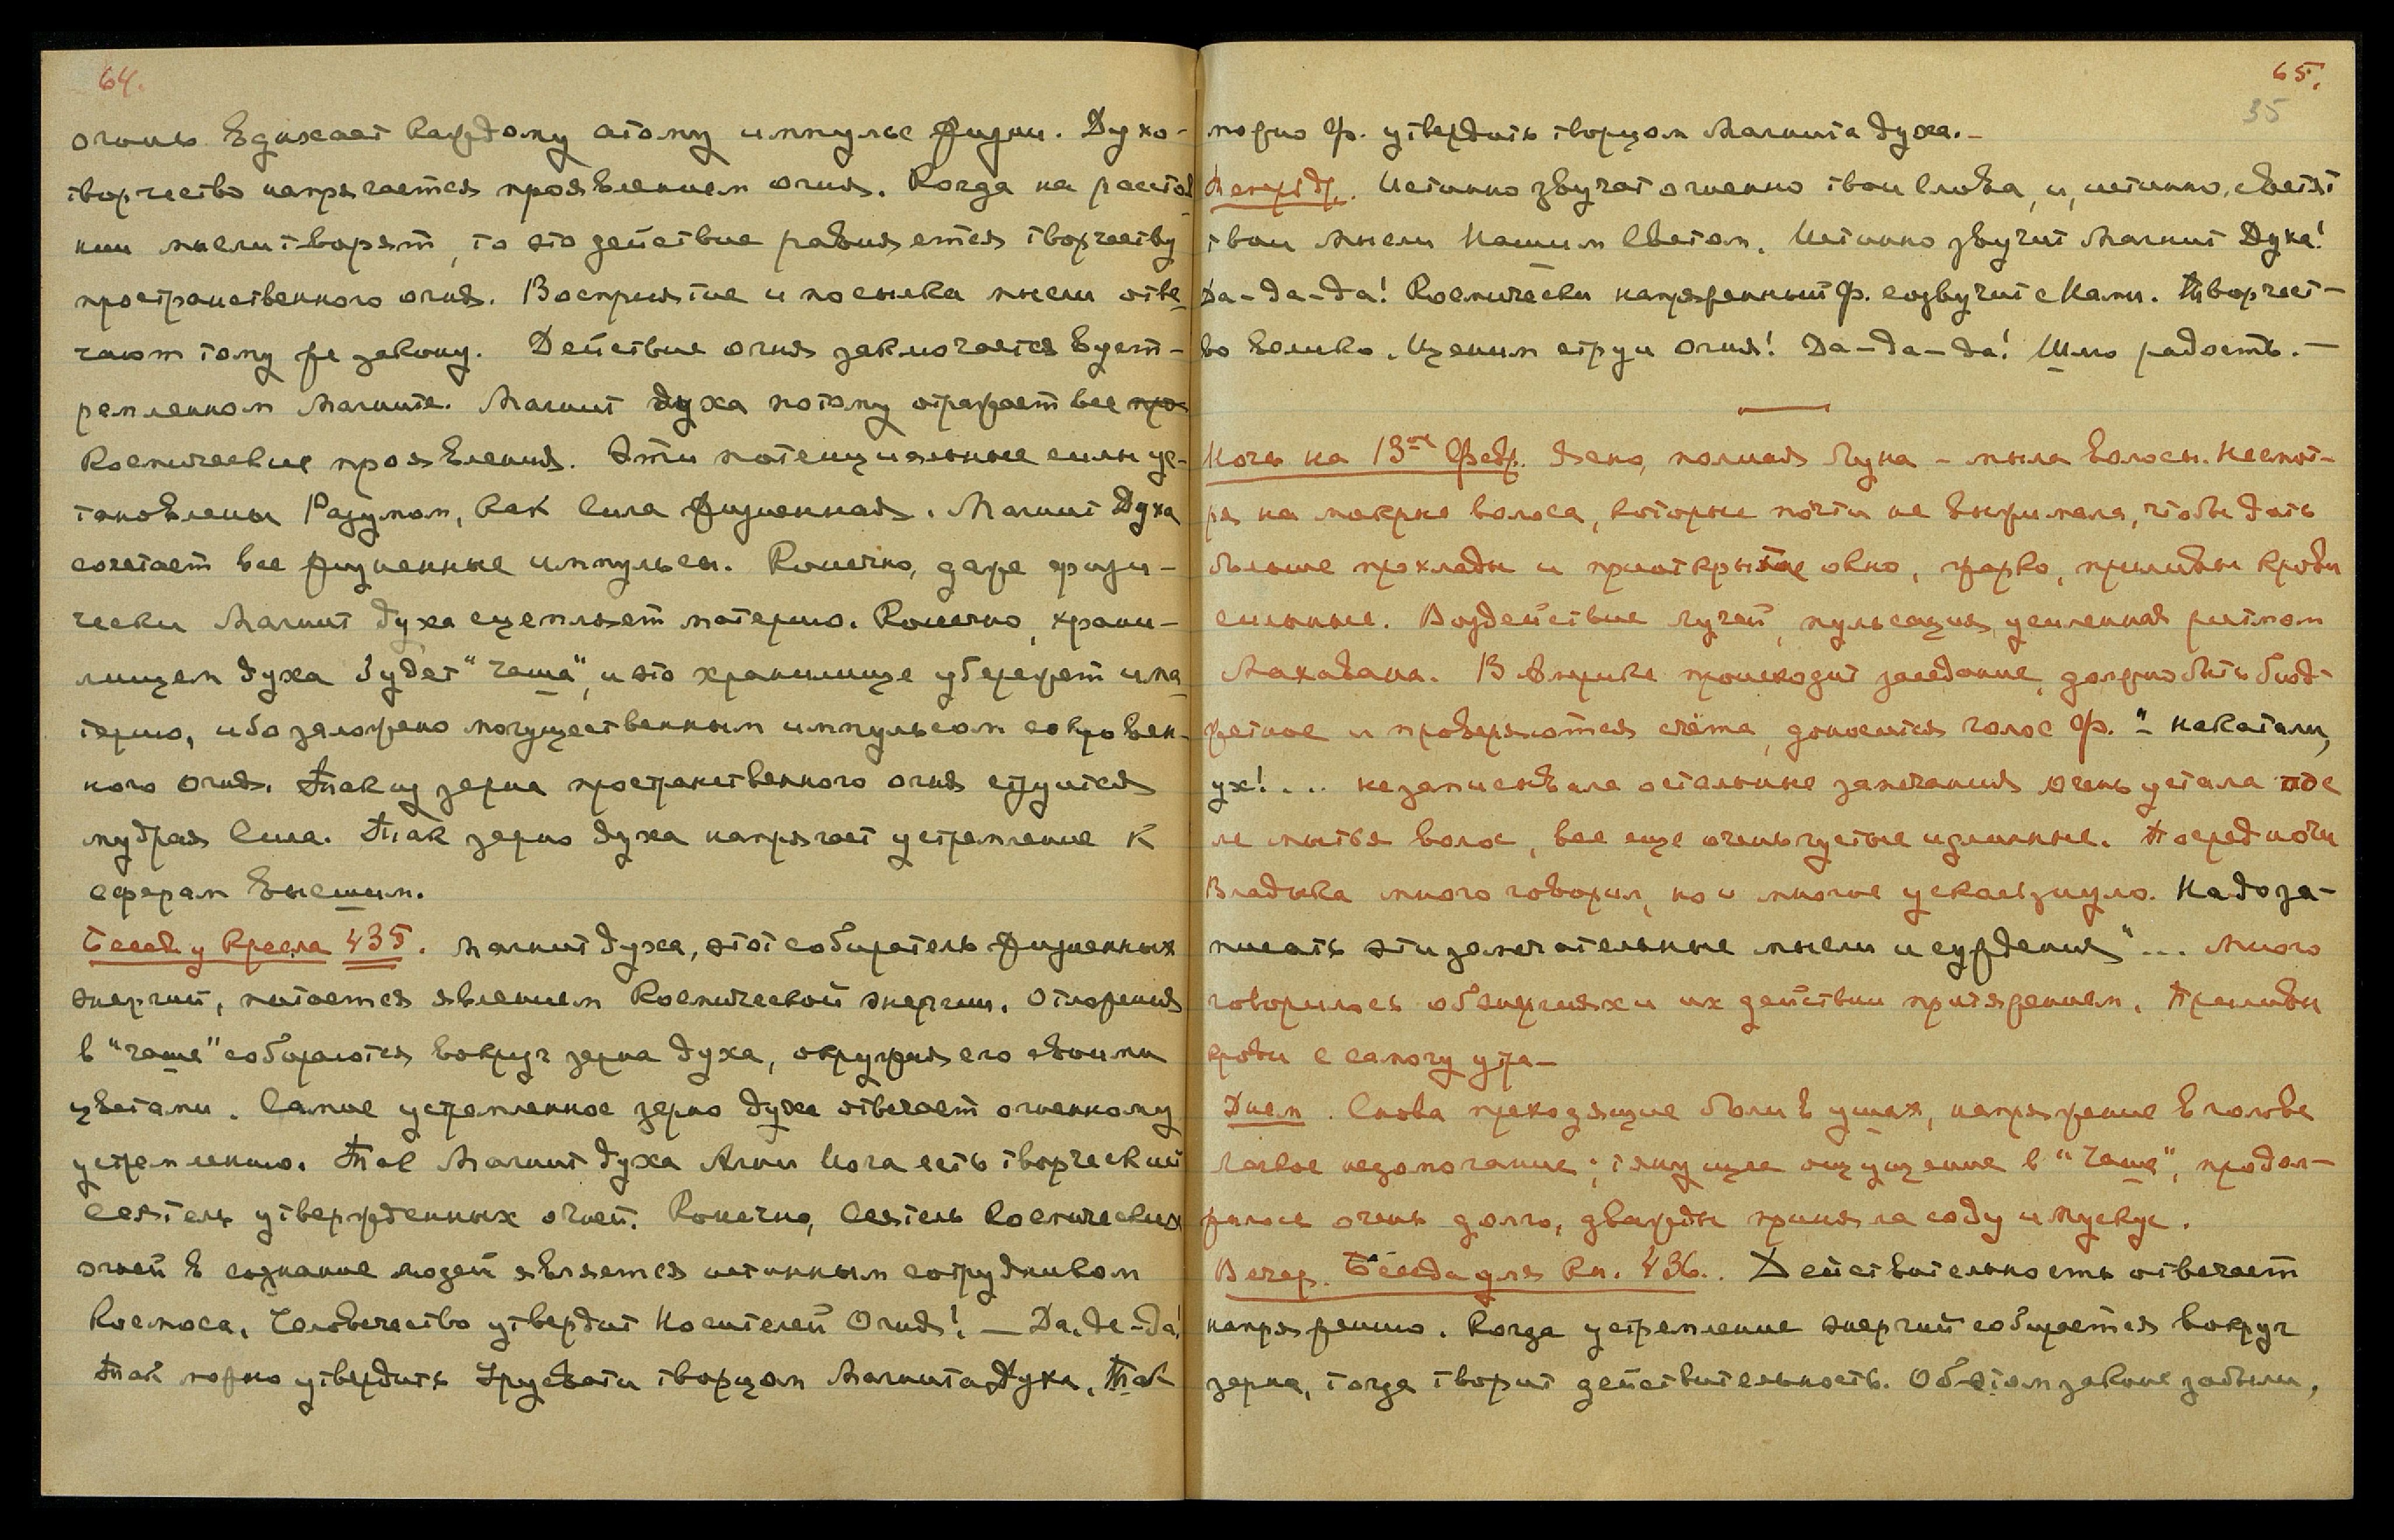 64.
огонь вдыхает каждому атому импульс жизни. Духо-
творчество напрягается проявлением огня. Когда на расстоя-
нии мысли творят, то это действие равняется творчеству
пространственного огня. Восприятие и посылка мысли отве-
чают тому же закону. Действие огня заключается в уст-
ремленном магните. Магнит духа потому отражает все про
Космические проявления. Эти потенциальные силы ус-
тановлены Разумом, как Сила жизненная. Магнит Духа
сочетает все жизненные импульсы. Конечно, даже физи-
чески Магнит духа сцепляет материю. Конечно, храни-
лищем духа будет "чаша", и это хранилище убережет и ма-
терию, ибо заложено могущественным импульсом сокровен-
ного огня. Так из зерна пространственного огня струится
мудрая Сила. Так зерно духа напрягает устремление к
сферам высшим.
Беседа у Кресла 435. Магнит духа, этот собиратель жизненных
энергий, питается явлением Космической энергии. Отложения
в "чаше" собираются вокруг зерна духа, окружая его своими
цветами. Самое устремленное зерно духа отвечает огненному
устремлению. Так Магнит духа Агни Йога есть творческий
Сеятель утвержденных огней. Конечно, Сеятель Космических
огней в сознание людей является истинным сотрудником
Космоса. Человечество утвердит Носителей Огня! — Да-да-да!
Так можно утвердить Урусвати творцом Магнита Духа. Так
65.
35
можно Ур. утвердить творцом Магнита духа.—
Истинно звучат огненно твои слова, и, истинно, светят
твои мысли Нашим Светом. Истинно звучит Магнит Духа!
Да-да-да! Космически напряженный Ф. созвучит с Нами. Творчест-
во велико. Ценим струи огня! Да-да-да! Шлю радость.—
Ночь на 13ое Февр. Ясно, полная Луна – мыла волосы. Несмот-
ря на мокрые волоса, которые почти не выжимала, чтобы дать
больше прохлады и приоткрытое окно, жарко, приливы крови
сильные. Воздействие лучей, пульсация, усиленная ритмом
Махавана. В Америке происходит заседание, должно быть бюд-
жетное и проверяются счёта, доносится голос Ф. "– накатали,
ух!... не записывала остальные замечания очень устала пос
ле мытья волос, все еще очень густые и длинные. Посреди ночи
Владыка много говорил, но и многое ускользнуло. Надо за-
писать эти замечательные мысли и суждения"... Много
говорилось об энергиях и их действии притяжением. Приливы
крови с самого утра—
Днем. Снова преходящие боли в ушах, напряжение в голове
легкое недомогание; тянущее ощущение в "Чаше", продол-
жалось очень долго, дважды приняла соду и мускус.
Вечер. Беседа для Кн. 436. Действительность отвечает
напряжению. Когда устремление энергий собирается вокруг
зерна, тогда творит действительность. Об этом законе забыли,